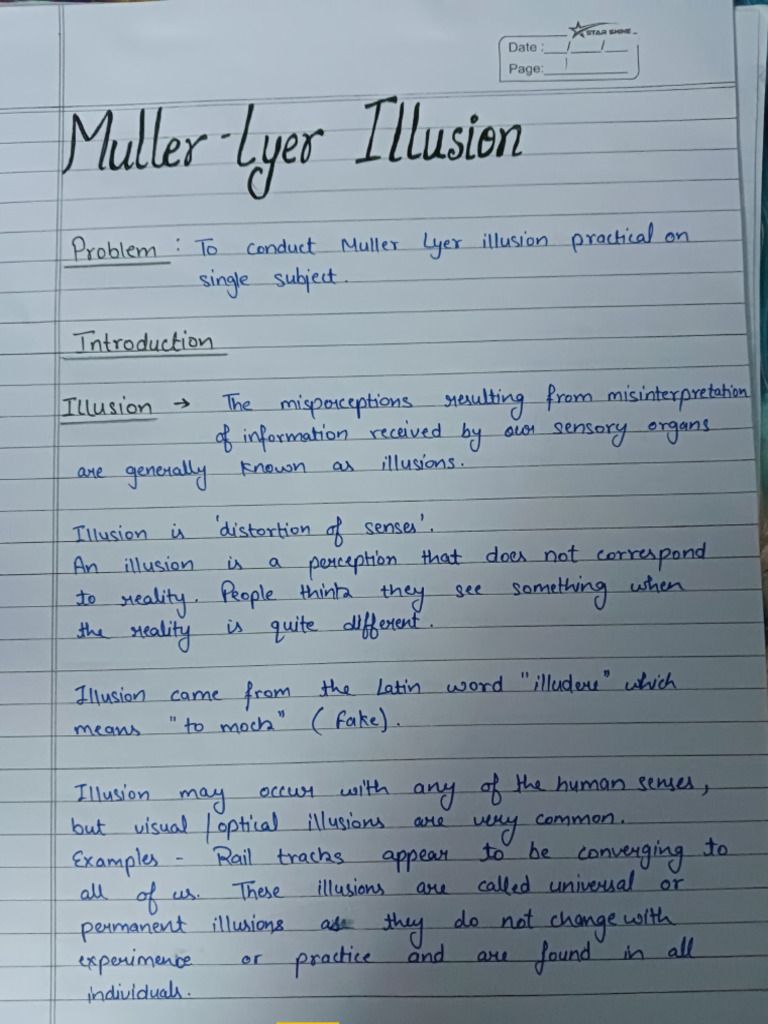 STAR SHINE
Date : __/__/__
Page:
Muller-Lyer Illusion
Problem : To conduct Muller Lyer illusion practical on
single subject.
Introduction
Illusion → The misperceptions resulting from misinterpretation
of information received by our sensory organs
are generally known as illusions.
Illusion is 'distortion of senses'.
An illusion is a perception that does not correspond
to reality. People think they see something when
the reality is quite different.
Illusion came from the Latin word "illudere" which
means "to mock" (fake).
Illusion may occur with any of the human senses,
but visual/optical illusions are very common.
Examples - Rail tracks appear to be converging to
all of us. These illusions are called universal or
permanent illusions as they do not change with
experimence or practice and are found in all
individuals.